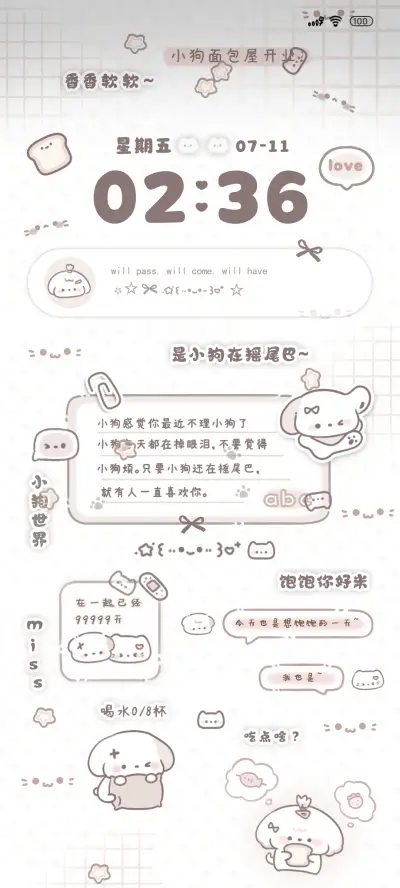 100
小狗面包屋开业
香香软软~
星期五 07-11
love
02:36
will pass. will come. will have
是小狗在摇尾巴~
小狗感觉你最近不理小狗了
小狗每天都在掉眼泪,不要觉得
小狗烦。只要小狗还在摇尾巴,
就有人一直喜欢你。
abc
小狗世界
饱饱你好米
在一起已经
99999天
今天也是想饱饱的一天~
我也是~
miss
喝水0/8杯
吃点啥?